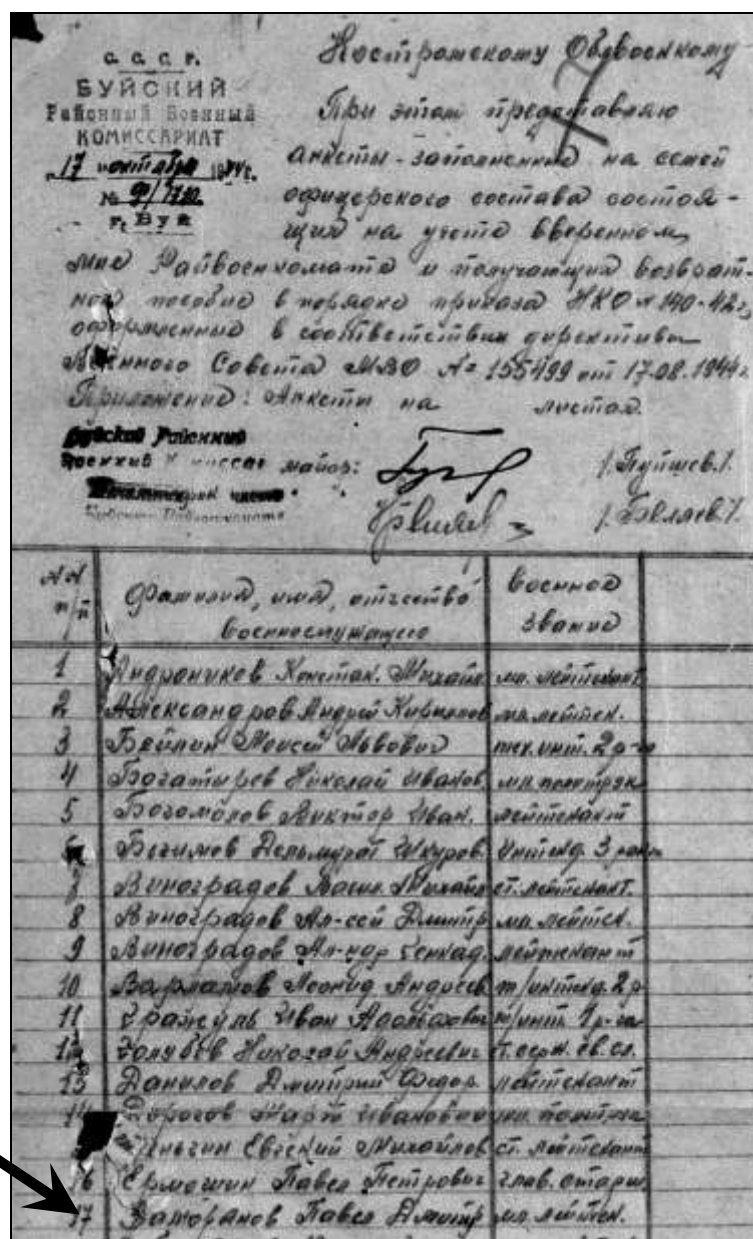 С.С.С.Р.
БУЙСКИЙ
Районный Военный
КОМИССАРИАТ
"17" октября 1944г.
№ 9/1720
г. Буй
Костромскому Облвоенкому
При этом представляю
анкеты - заполненные на семей
офицерского состава состоя-
щих на учете вверенном
мне Райвоенкомате и получающих возврат-
ное пособие в порядке приказа НКО № 140-42г,
оформленные в соответствии директивы
Военного Совета МВО № 155499 от 17.08.1944г.
Приложение: Анкеты на листах.
Буйский Районный
Военный Комиссар майор: /.
часть
/. Беляев./.
№№ п/п Фамилия, имя, отчество военнослужащего Военное звание
1 Андроников Констан. Михайл мл. лейтенант
2 Александров Андрей Кириллов мл. лейтен.
3 Бейлин Моисей Львович тех. инт. 2 р-га
4 Богатырев Николай Иванов. мл. политрук
5 Богомолов Виктор Иван. лейтенант
6 интенд. 3 ранг
7 Виноградов Васил. Михайл ст. лейтенант.
8 Виноградов Ал-сей Дмитр мл. лейтен.
9 Виноградов Ал-ндр Геннад. лейтенант
10 Варламов Леонид Андреев т/интенд. 2 р
11 Иван т/инт. 1 р-га
12 Голубев Николай Андреевич
13 Данилов Дмитрий Федор лейтенант
14 Дорогов Иванович мл. политрук
Евгений Михайлов ст. лейтенант
16 Ермошин Павел Петрович глав. старш.
17 Павел Дмитр мл. лейтен.